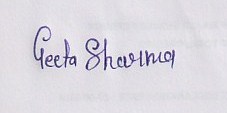 Geeta Sharma